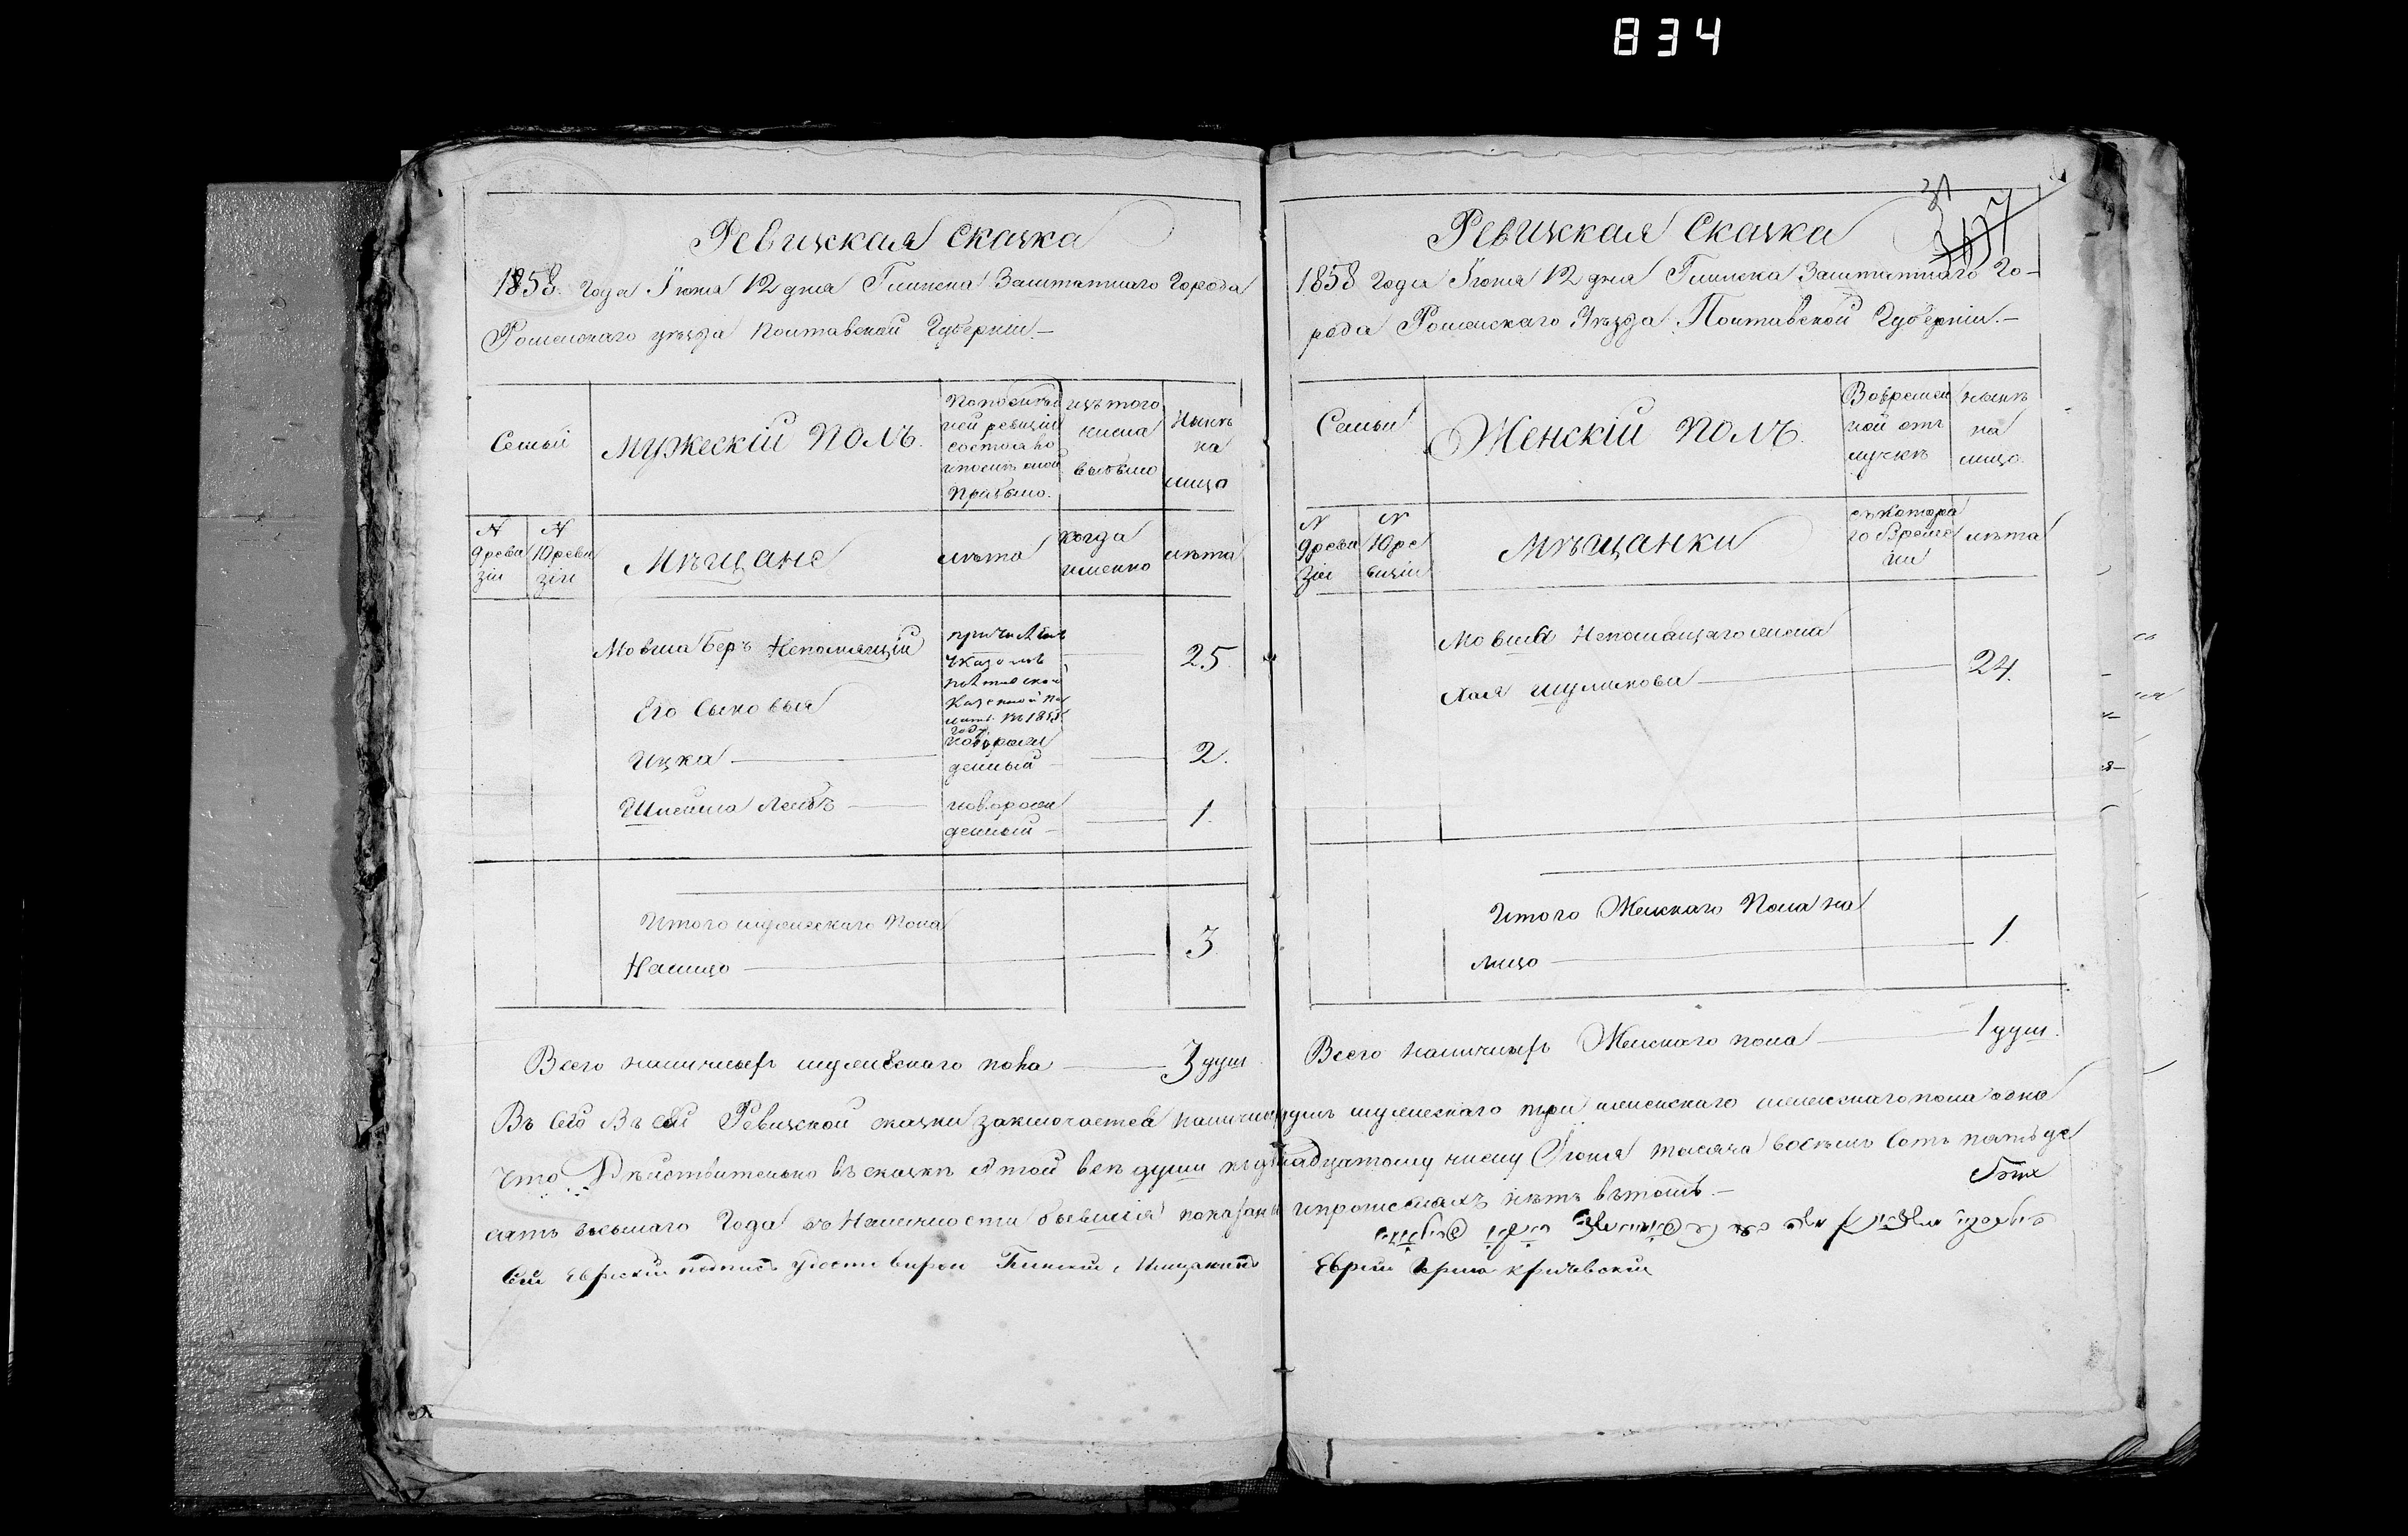 834
Ревизкая Сказка
1858. Года Іюня 12 дня Глинска Заштатнаго Города
Роменскаго уѣзда Полтавской Губерніи.—
Семьи
Мужескій полъ.
По послѣд
ней ревизіи
состояло
и послѣ оной
прибыло.
изъ того
числа
выбыло
Нынѣ
на
лицо
N
9 реви
зіи
N
10 реви
зіи
Мѣщане
лѣта
когда
именно
лѣта
Мовша Беръ Непомнящій
причисленъ
указомъ
Полтавской
Казенной Па
латы въ 185
году
25.
Его Сыновья
Ицка
новорож
денный
2.
Шлейма Лейбъ
новорож
денный
1.
Итого мужескаго Пола
На лицо
3
Всего наличныхъ мужескаго пола 3 душ
31
Ревизкая Сказка
1858 Года Іюня 12 дня Глинска Заштатнаго Го-
рода Роменскаго Уѣзда Полтавской Губерніи.—
Семьи
Женскій полъ.
Во времен
ной от
лучкѣ
нынѣ
на
лицо.
N
9 реви
зіи
N
10 ре
визіи
Мѣщанки
съ котора
го Време
ни
лѣта
Мовши Непомнящаго жена
Хая Шулимова
24.
Итого Женскаго Пола на
лицо
1.
Всего наличныхъ Женскаго пола 1 душ.
Въ сей Въ сей Ревизской сказки заключается наличныхъ душъ мужескаго три женскаго женскаго пола одна
Что Дѣйствительно въ сказкѣ этой всѣ души къ двѣнадцатому числу Іюня тысяча восемь сотъ пять де
сятъ восьмаго Года въ Наличности бывшія показаны и прописныхъ нѣтъ въ томъ.—
Сій Еврескій подпись Глинскій Мищанинъ Еврей Кричевскій